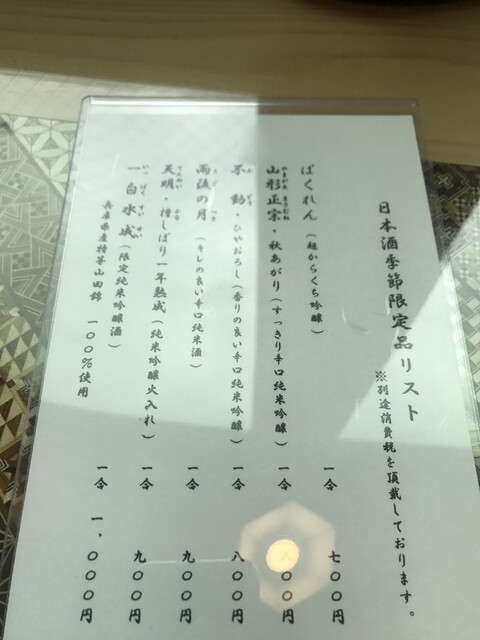 日本酒季節限定品リスト
※別途消費税を頂戴しております。
ばくれん（超からくち吟醸）一合 七〇〇円
やまがたまさむね
山形正宗・秋あがり（すっきり辛口純米吟醸）一合 〇〇円
ふどう
不動・ひやおろし（香りの良い辛口純米吟醸）一合 八〇〇円
うごのつき
雨後の月（キレの良い辛口純米酒）一合 九〇〇円
てんめい ふね
天明・槽しぼり一年熟成（純米吟醸火入れ）一合 九〇〇円
いっぱくすいせい
一白水成（限定純米吟醸酒）一合 一、〇〇〇円
兵庫県産特等山田錦 一〇〇％使用